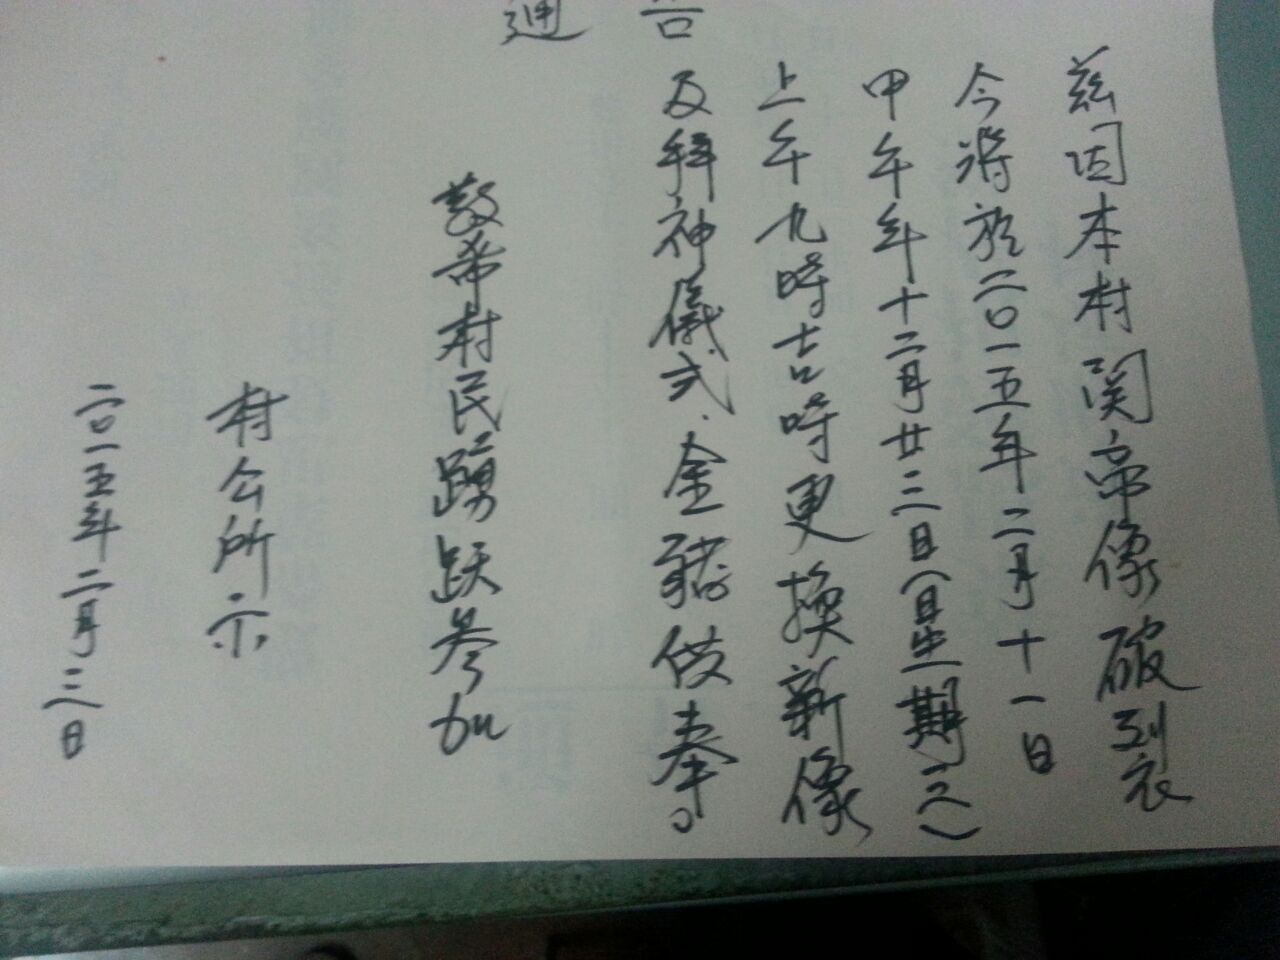 通告
茲因本村関帝像破裂
今將於二〇一五年二月十一日
甲午年十二月廿三日(星期三)
上午九時吉時更換新像
及拜神儀式.金豬供奉。
敬希村民踴跃參加
村公所示
二〇一五年二月三日